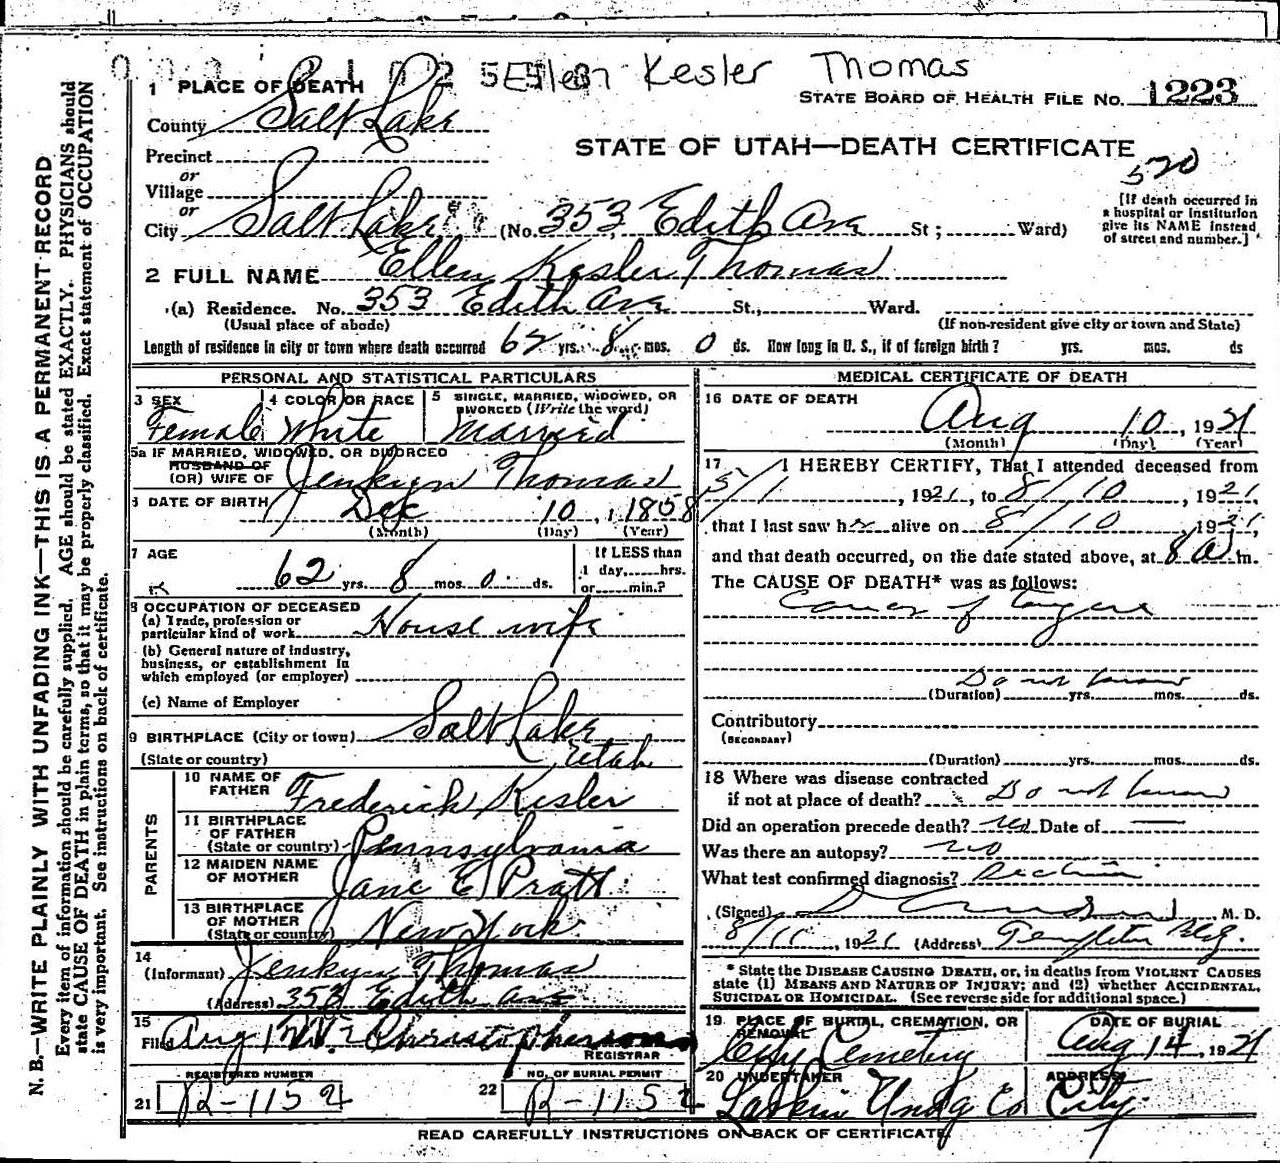 Ellen Kesler Thomas
1 PLACE OF DEATH
STATE BOARD OF HEALTH FILE NO. 1223
County Salt Lake
STATE OF UTAH—DEATH CERTIFICATE
Precinct
or
Village
520
or
City Salt Lake (No. 353 Edith Ave St; Ward)
[If death occurred in
a hospital or institution
give its NAME instead
of street and number.]
2 FULL NAME Ellen Kesler Thomas
(a) Residence. No. 353 Edith Ave St., Ward.
(Usual place of abode) (If non-resident give city or town and State)
Length of residence in city or town where death occurred 62 yrs. 8 mos. 0 ds. How long in U. S., if of foreign birth? yrs. mos. ds
PERSONAL AND STATISTICAL PARTICULARS
3 SEX Female
4 COLOR OR RACE White
5 SINGLE, MARRIED, WIDOWED, OR
DIVORCED (Write the word)
Married
5a IF MARRIED, WIDOWED, OR DIVORCED
HUSBAND OF
(OR) WIFE OF Jenkyn Thomas
6 DATE OF BIRTH Dec 10, 1858
(Month) (Day) (Year)
7 AGE
62 yrs. 8 mos 0 ds.
If LESS than
1 day, hrs.
or min.?
8 OCCUPATION OF DECEASED
(a) Trade, profession or
particular kind of work House wife
(b) General nature of industry,
business, or establishment in
which employed (or employer)
(c) Name of Employer
9 BIRTHPLACE (City or town) Salt Lake
(State or country) Utah
PARENTS
10 NAME OF
FATHER Frederick Kesler
11 BIRTHPLACE
OF FATHER
(State or country) Pennsylvania
12 MAIDEN NAME
OF MOTHER Jane E Pratt
13 BIRTHPLACE
OF MOTHER
(State or country) New York
14
(Informant) Jenkyn Thomas
(Address) 353 Edith Ave
15
Filed Aug Christopherson
REGISTRAR
REGISTERED NUMBER
21 R-1152
NO. OF BURIAL PERMIT
22 R-1152
MEDICAL CERTIFICATE OF DEATH
16 DATE OF DEATH
Aug 10, 1921
(Month) (Day) (Year)
17 I HEREBY CERTIFY, That I attended deceased from
5/1, 1921, to 8/10, 1921,
that I last saw her alive on 8/10, 1921,
and that death occurred, on the date stated above, at 8 a m.
The CAUSE OF DEATH* was as follows:
Cancer of tongue
Do not know
(Duration) yrs. mos. ds.
Contributory
(SECONDARY)
(Duration) yrs. mos. ds.
18 Where was disease contracted
if not at place of death? Do not know
Did an operation precede death? yes Date of —
Was there an autopsy? no
What test confirmed diagnosis? Section
(Signed) M. D.
8/11, 1921 (Address) Templeton Bldg.
* State the DISEASE CAUSING DEATH, or, in deaths from VIOLENT CAUSES
state (1) MEANS AND NATURE OF INJURY; and (2) whether ACCIDENTAL,
SUICIDAL OR HOMICIDAL. (See reverse side for additional space.)
19 PLACE OF BURIAL, CREMATION, OR
REMOVAL
City Cemetery
DATE OF BURIAL
Aug 14, 1921
20 UNDERTAKER
Larkin Undg Co
ADDRESS
City.
READ CAREFULLY INSTRUCTIONS ON BACK OF CERTIFICATE
N. B.—WRITE PLAINLY WITH UNFADING INK—THIS IS A PERMANENT RECORD
Every item of information should be carefully supplied. AGE should be stated EXACTLY. PHYSICIANS should
state CAUSE OF DEATH in plain terms, so that it may be properly classified. Exact statement of OCCUPATION
is very important. See instructions on back of certificate.